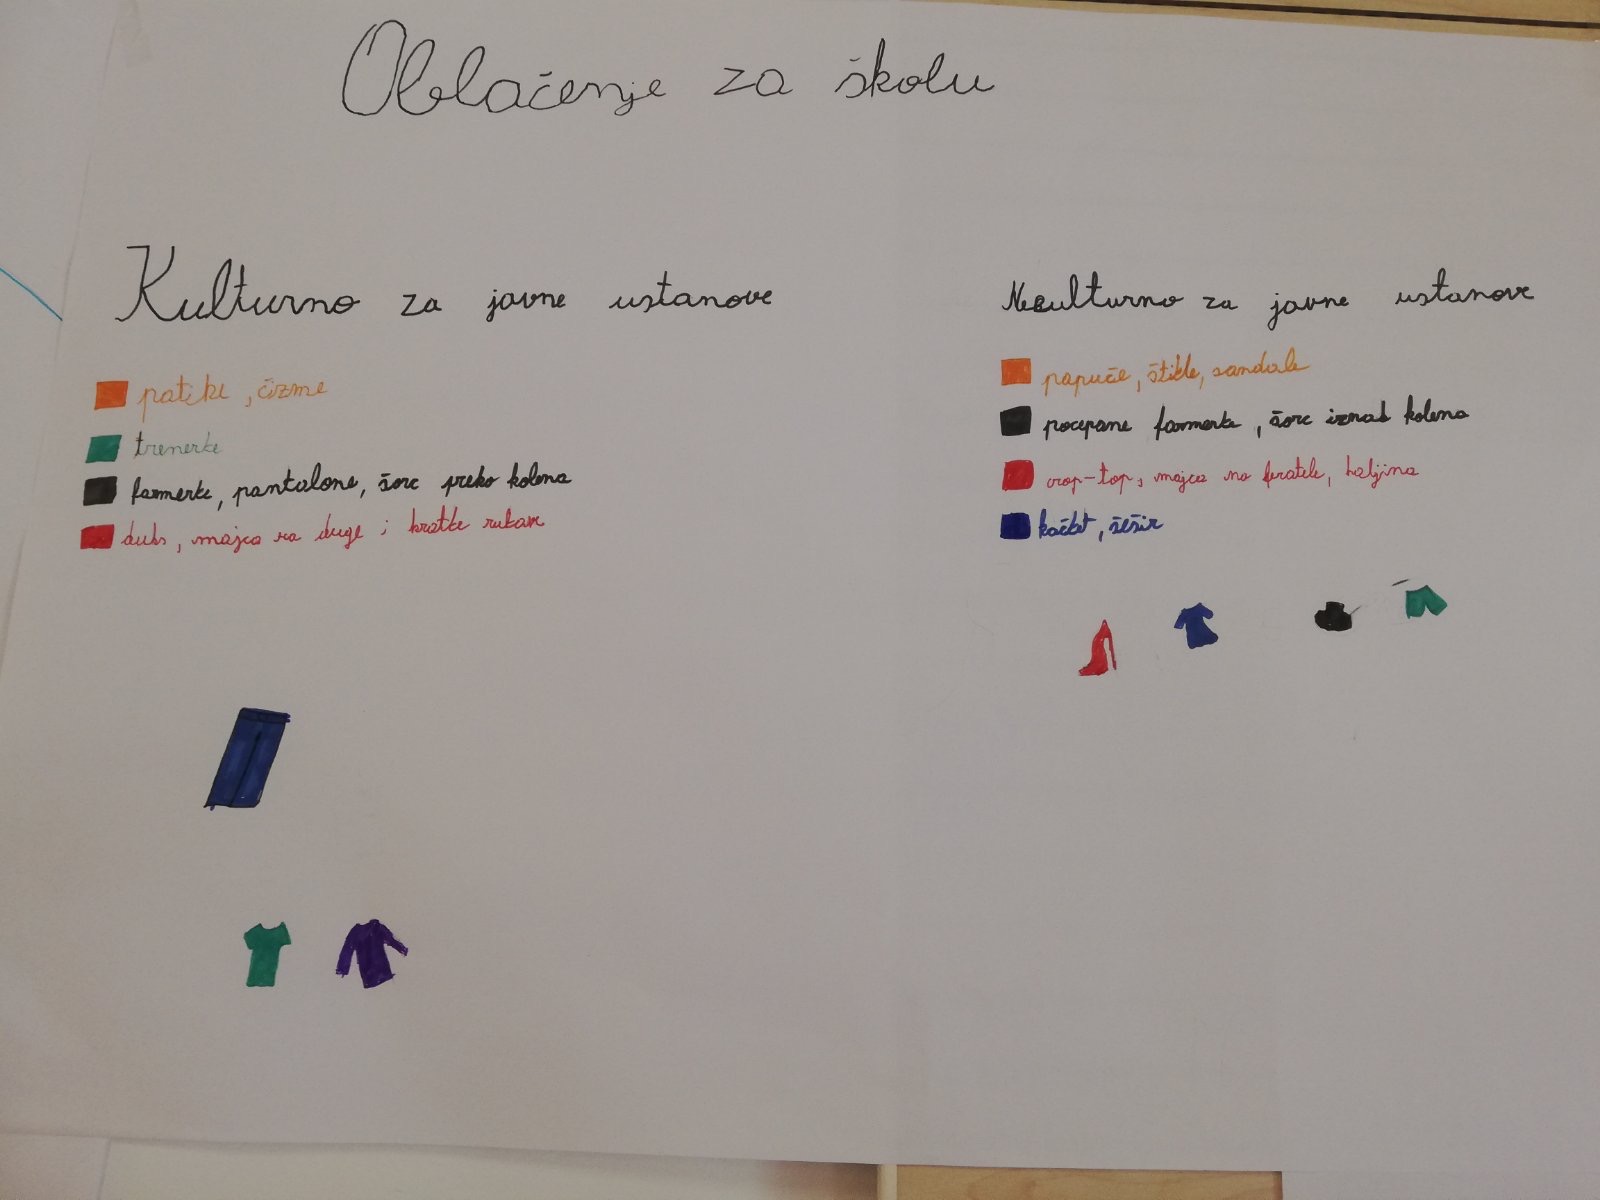 Oblačenje za školu
Kulturno za javne ustanove
patike, čizme
trenerke
farmerke, pantalone, šorc preko kolena
duks, majca na duge i kratke rukave
Nekulturno za javne ustanove
papuče, štikle, sandale
pocepane farmerke, šorc iznad kolena
crop-top, majca na bratele, haljina
kačket, šešir